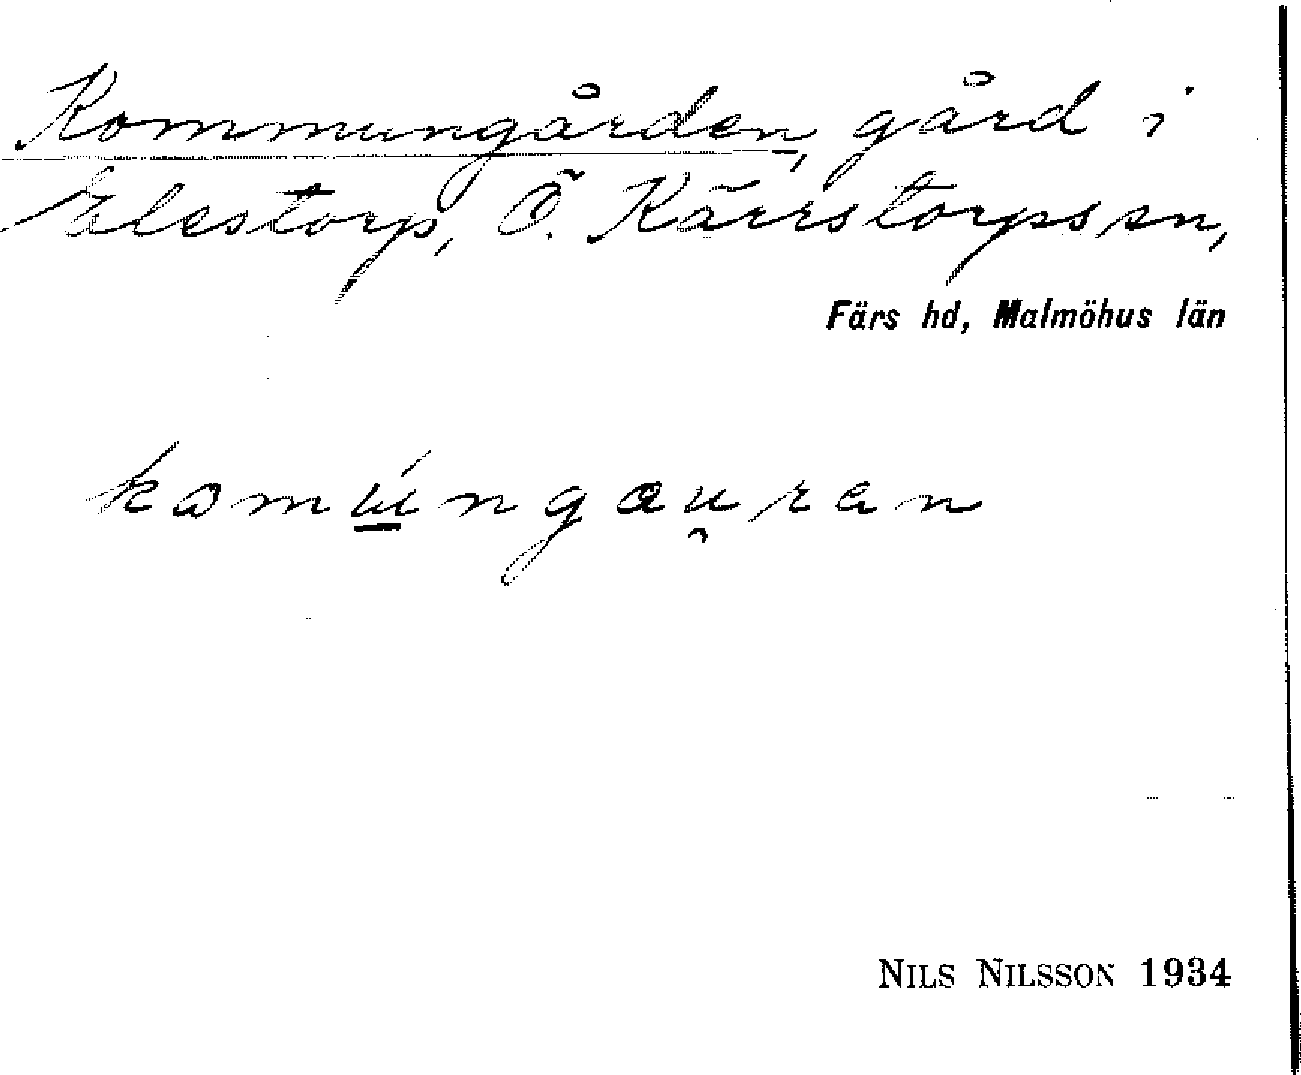 Kommungården, gård i
Elestorp, Ö. Kärrstorps sn,
Färs hd, Malmöhus län
komúngau̯ran
NILS NILSSON 1934